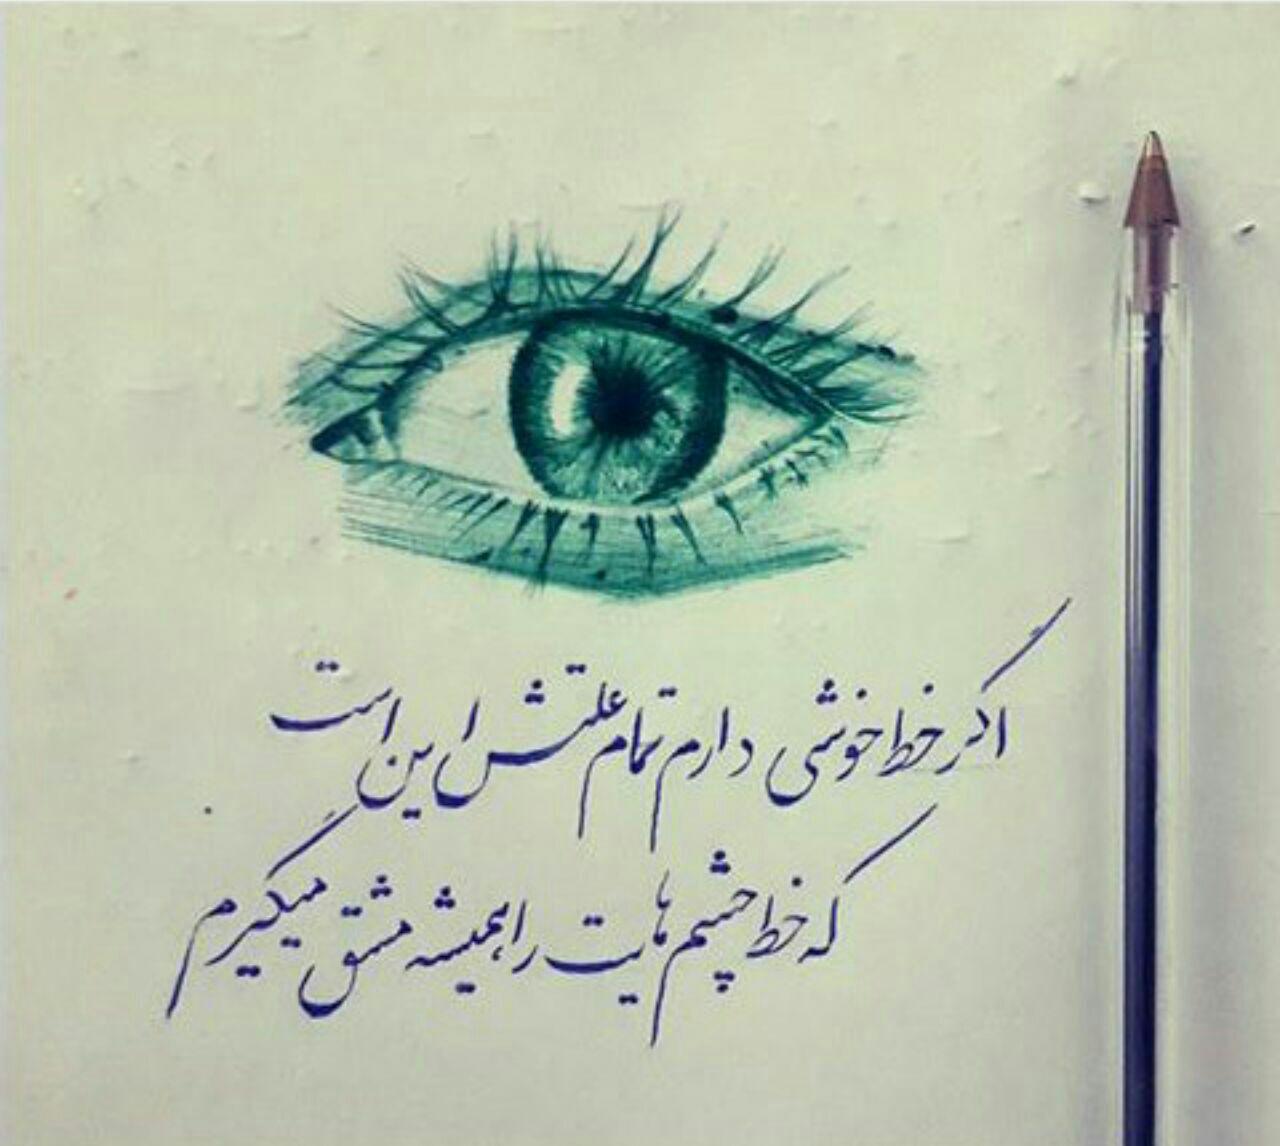 اگر خط خوشی دارم تمام علتش این است
که خط چشم هایت را همیشه مشق میگیرم